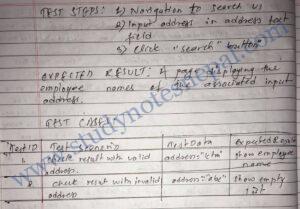 TEST STEPS: 1) Navigation to search us
2) Input address in address text
field
3) Click "search" button.
EXPECTED RESULT: A page displaying the
employee names of the associated input
address.
TEST CASES:
Test ID Test Scenario Test Data Expected
1. check result with valid address="ktm" show employee
address. name
2 check result with invalid address="abc" show empty
address list
www.studynotesnepal.com